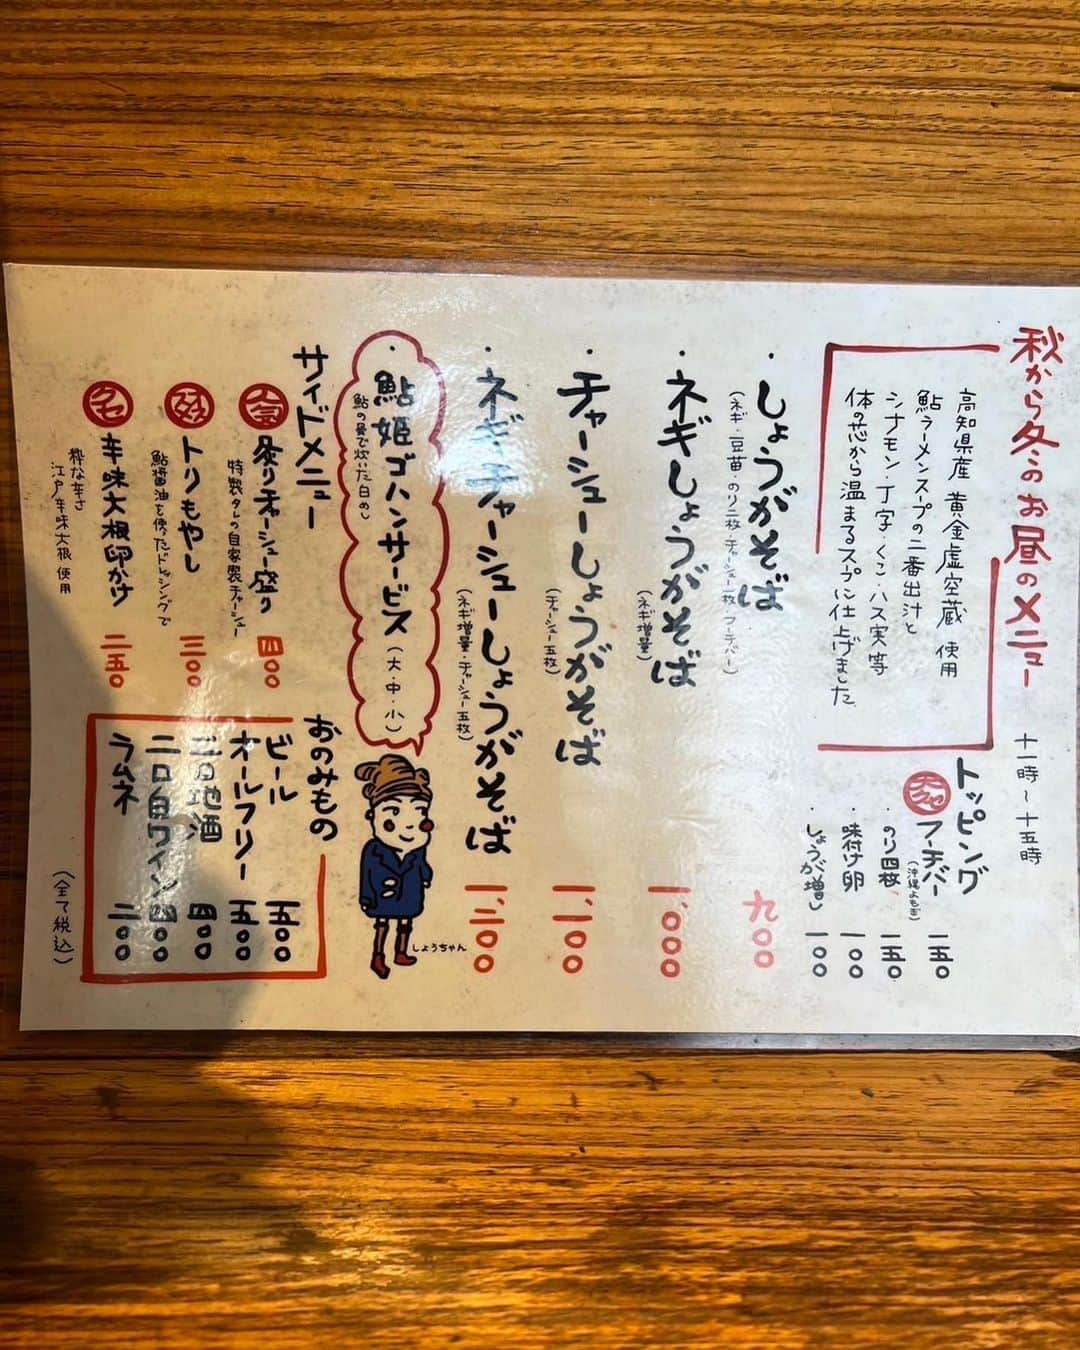 秋から冬のお昼のメニュー
十一時～十五時
高知県産 黄金虚空蔵 使用
鮎ラーメンスープの二番出汁と
シナモン・丁字・くこ・ハス実等
体の芯から温まるスープに仕上げました
トッピング
フーチバー 一五〇
(沖縄よもぎ)
・のり四枚 一五〇
・味付け卵 一〇〇
・しょうが増し 一〇〇
・しょうがそば 九〇〇
(ネギ・豆苗・のり二枚・チャーシュー一枚 フーチバー)
・ネギしょうがそば 一、〇〇〇
(ネギ増量)
・チャーシューしょうがそば 一、一〇〇
(チャーシュー五枚)
・ネギチャーシューしょうがそば 一、二〇〇
(ネギ増量・チャーシュー五枚)
・鮎姫ゴハンサービス(大・中・小)
鮎の骨で炊いた白めし
しょうちゃん
サイドメニュー
人気 炙りチャーシュー盛り 四〇〇
特製タレの自家製チャーシュー
トリもやし 三〇〇
鮎醤油を使ったドレッシングで
辛味大根卸かけ 二五〇
粋な辛さ
江戸辛味大根 使用
おのみもの
ビール 五〇〇
オールフリー 五〇〇
二口地酒 四〇〇
二口白ワイン 四〇〇
ラムネ 二〇〇
(全て税込)